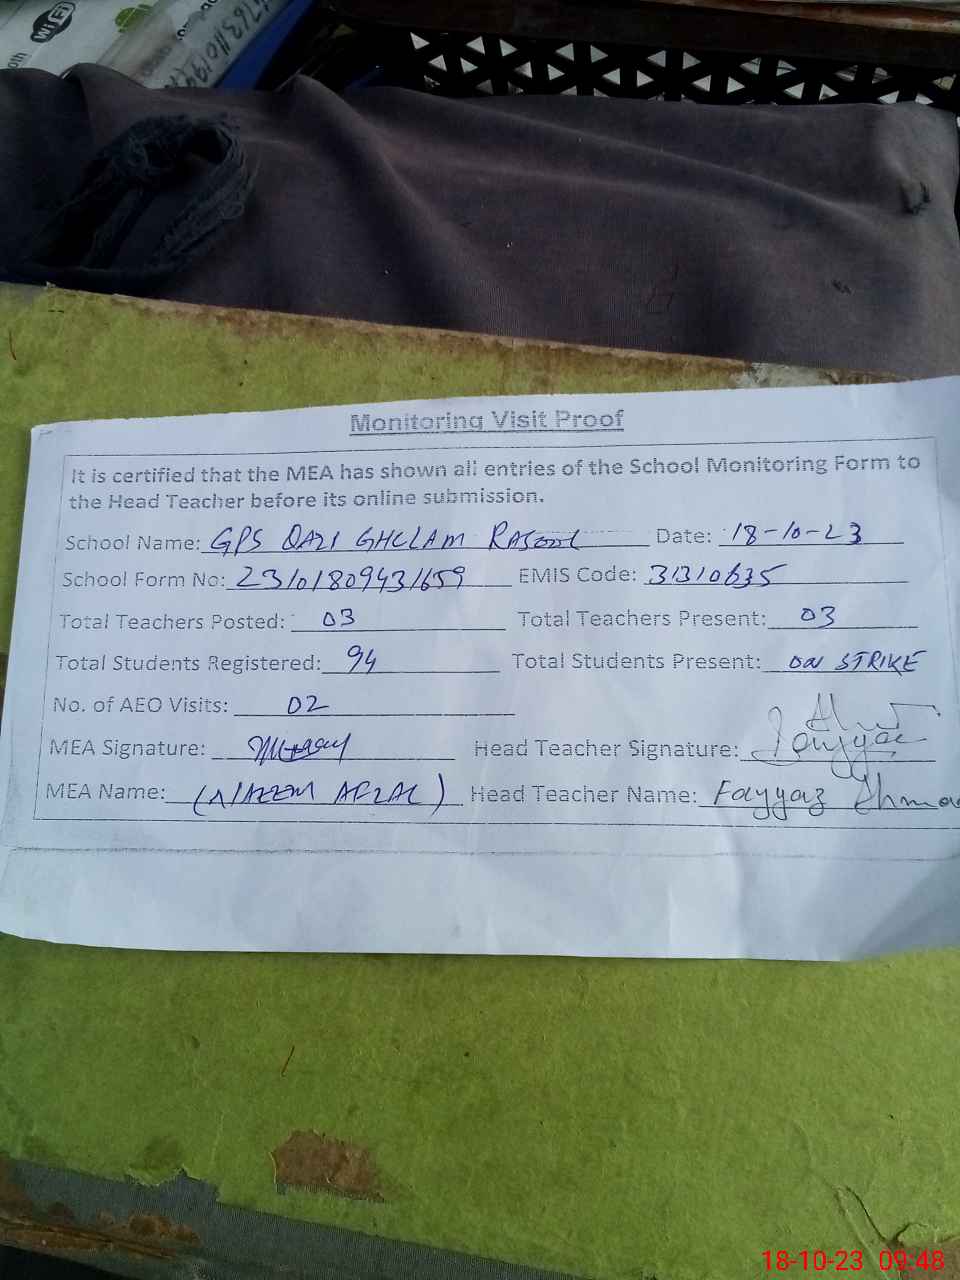 WiFi
Monitoring Visit Proof
It is certified that the MEA has shown all entries of the School Monitoring Form to
the Head Teacher before its online submission.
School Name: GPS QAZI GHULAM RASOOL Date: 18-10-23
School Form No: 23101809431659 EMIS Code: 31310635
Total Teachers Posted: 03 Total Teachers Present: 03
Total Students Registered: 94 Total Students Present: ON STRIKE
No. of AEO Visits: 02
MEA Signature: Head Teacher Signature:
MEA Name: (NAEEM AFZAL) Head Teacher Name: Fayyaz Ahma
18-10-23 09:48